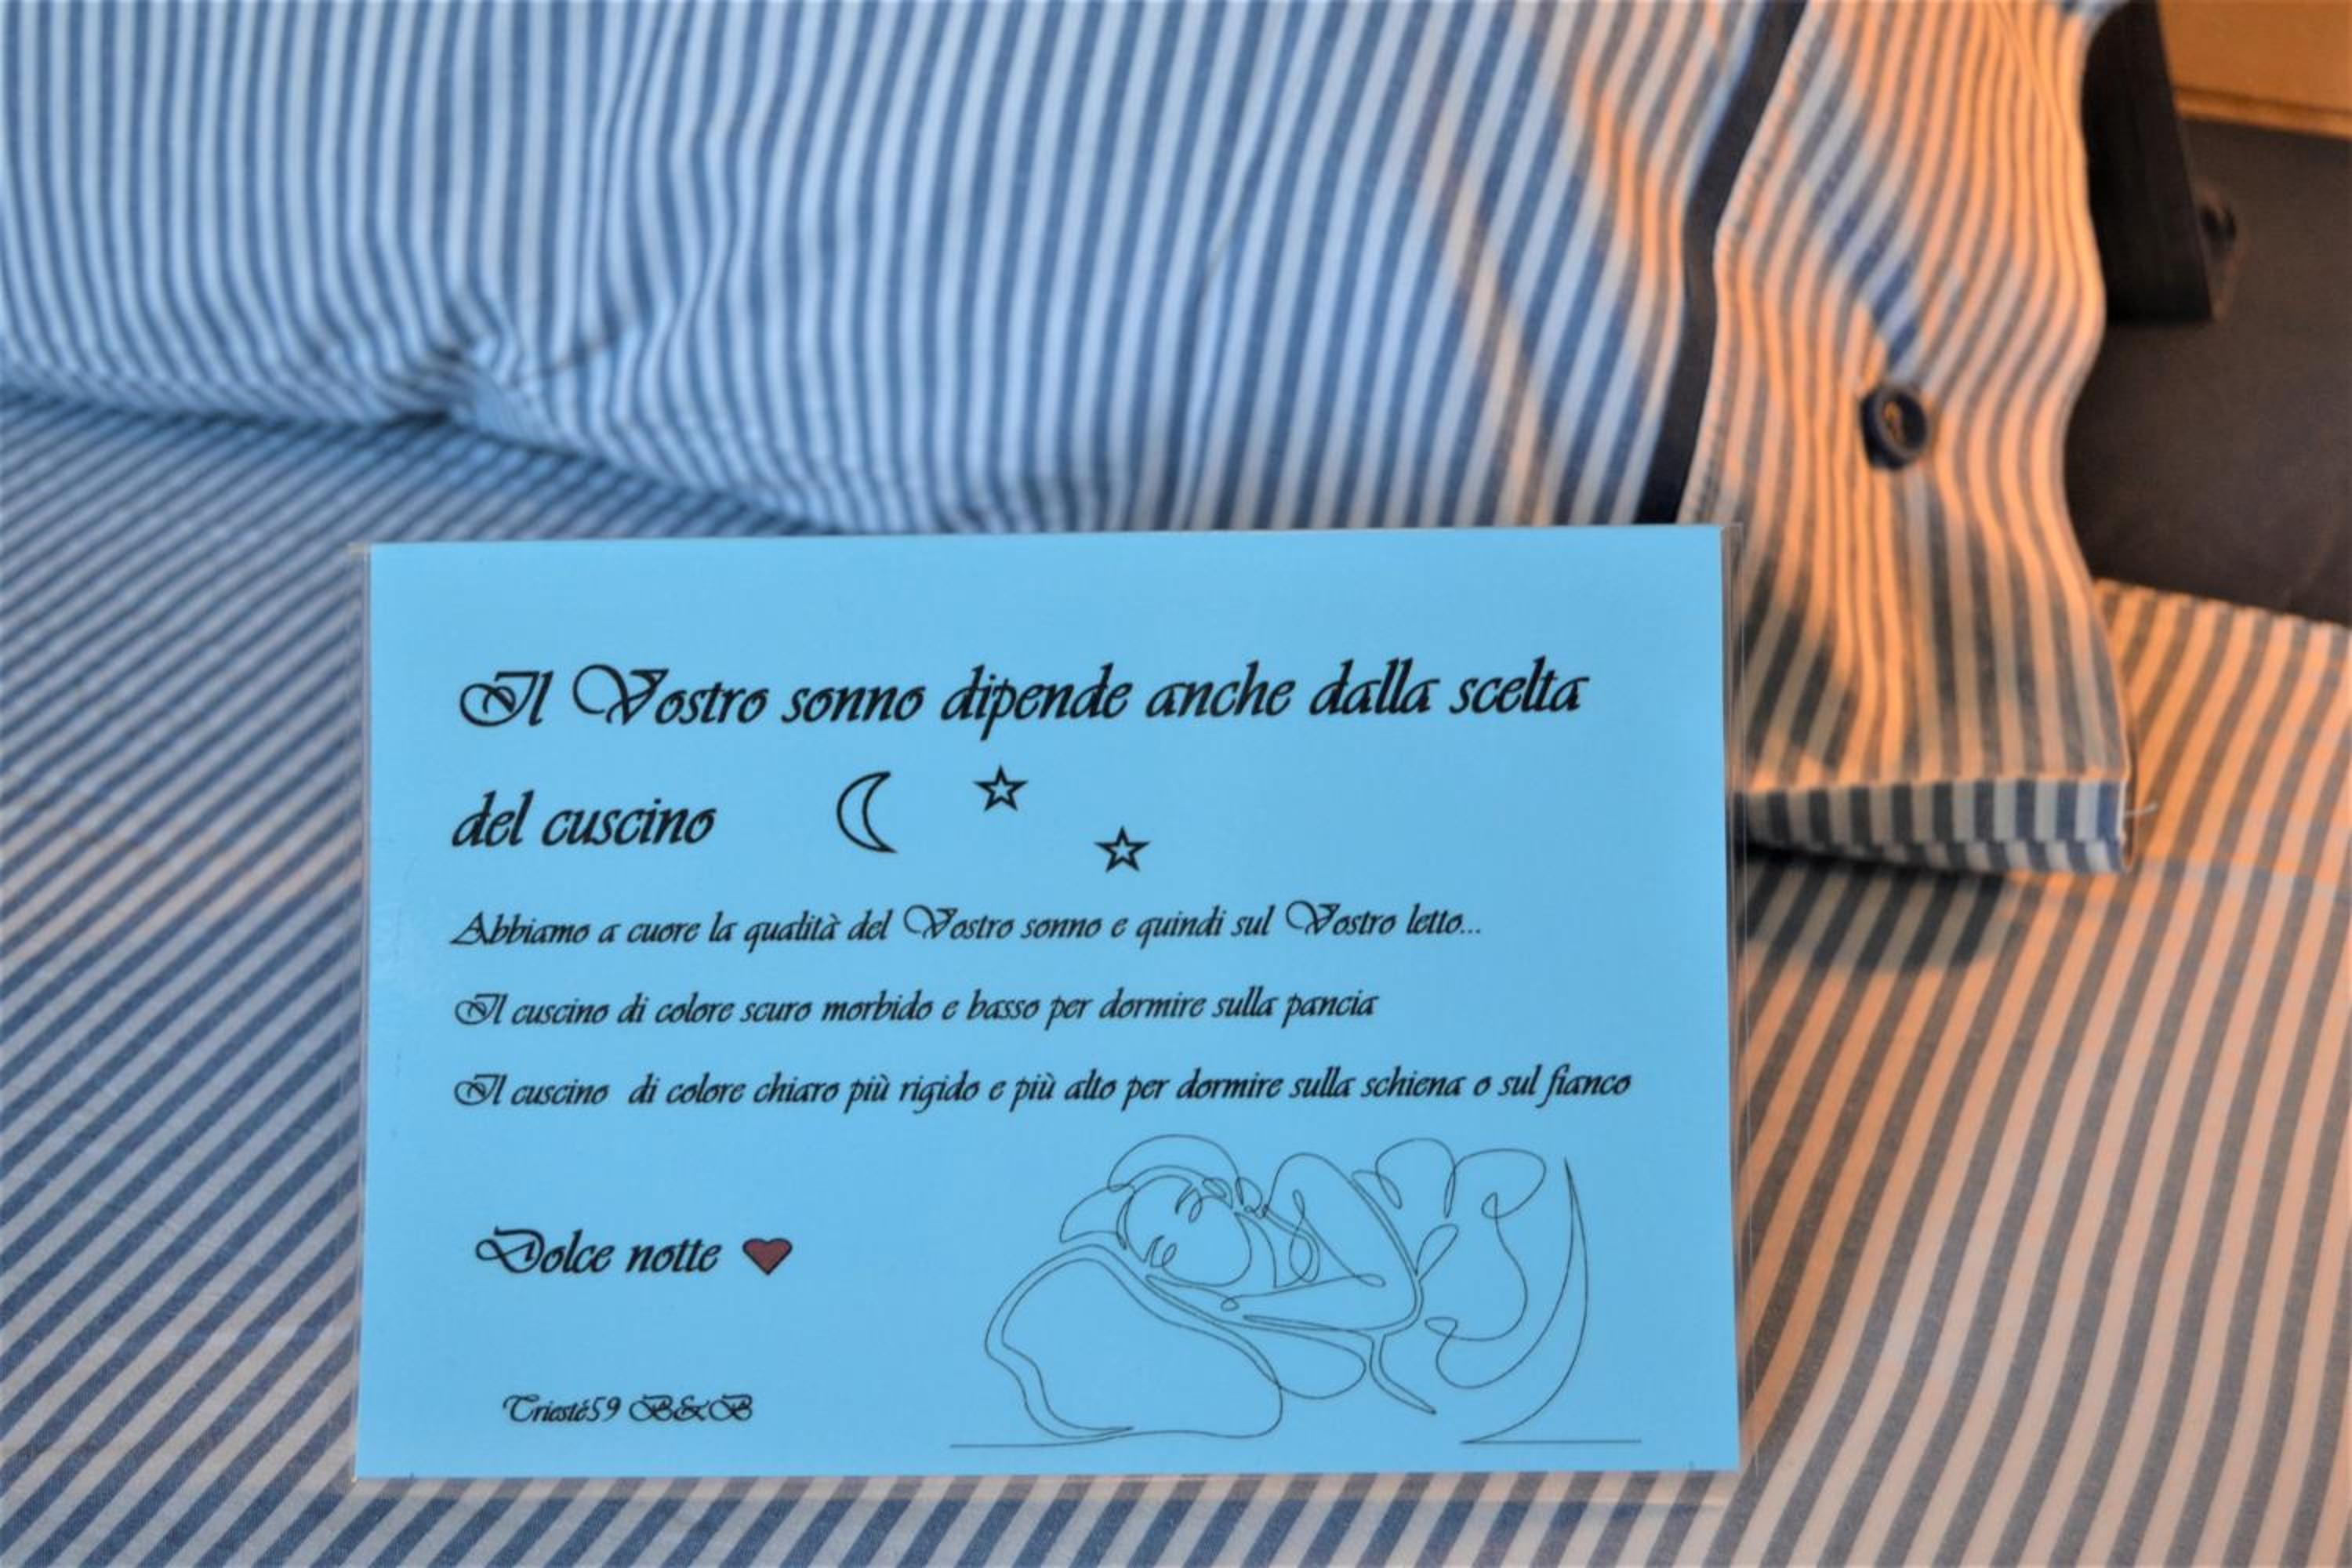 Il Vostro sonno dipende anche dalla scelta
del cuscino
Abbiamo a cuore la qualità del Vostro sonno e quindi sul Vostro letto...
Il cuscino di colore scuro morbido e basso per dormire sulla pancia
Il cuscino di colore chiaro più rigido e più alto per dormire sulla schiena o sul fianco
Dolce notte
Triesté59 B&B